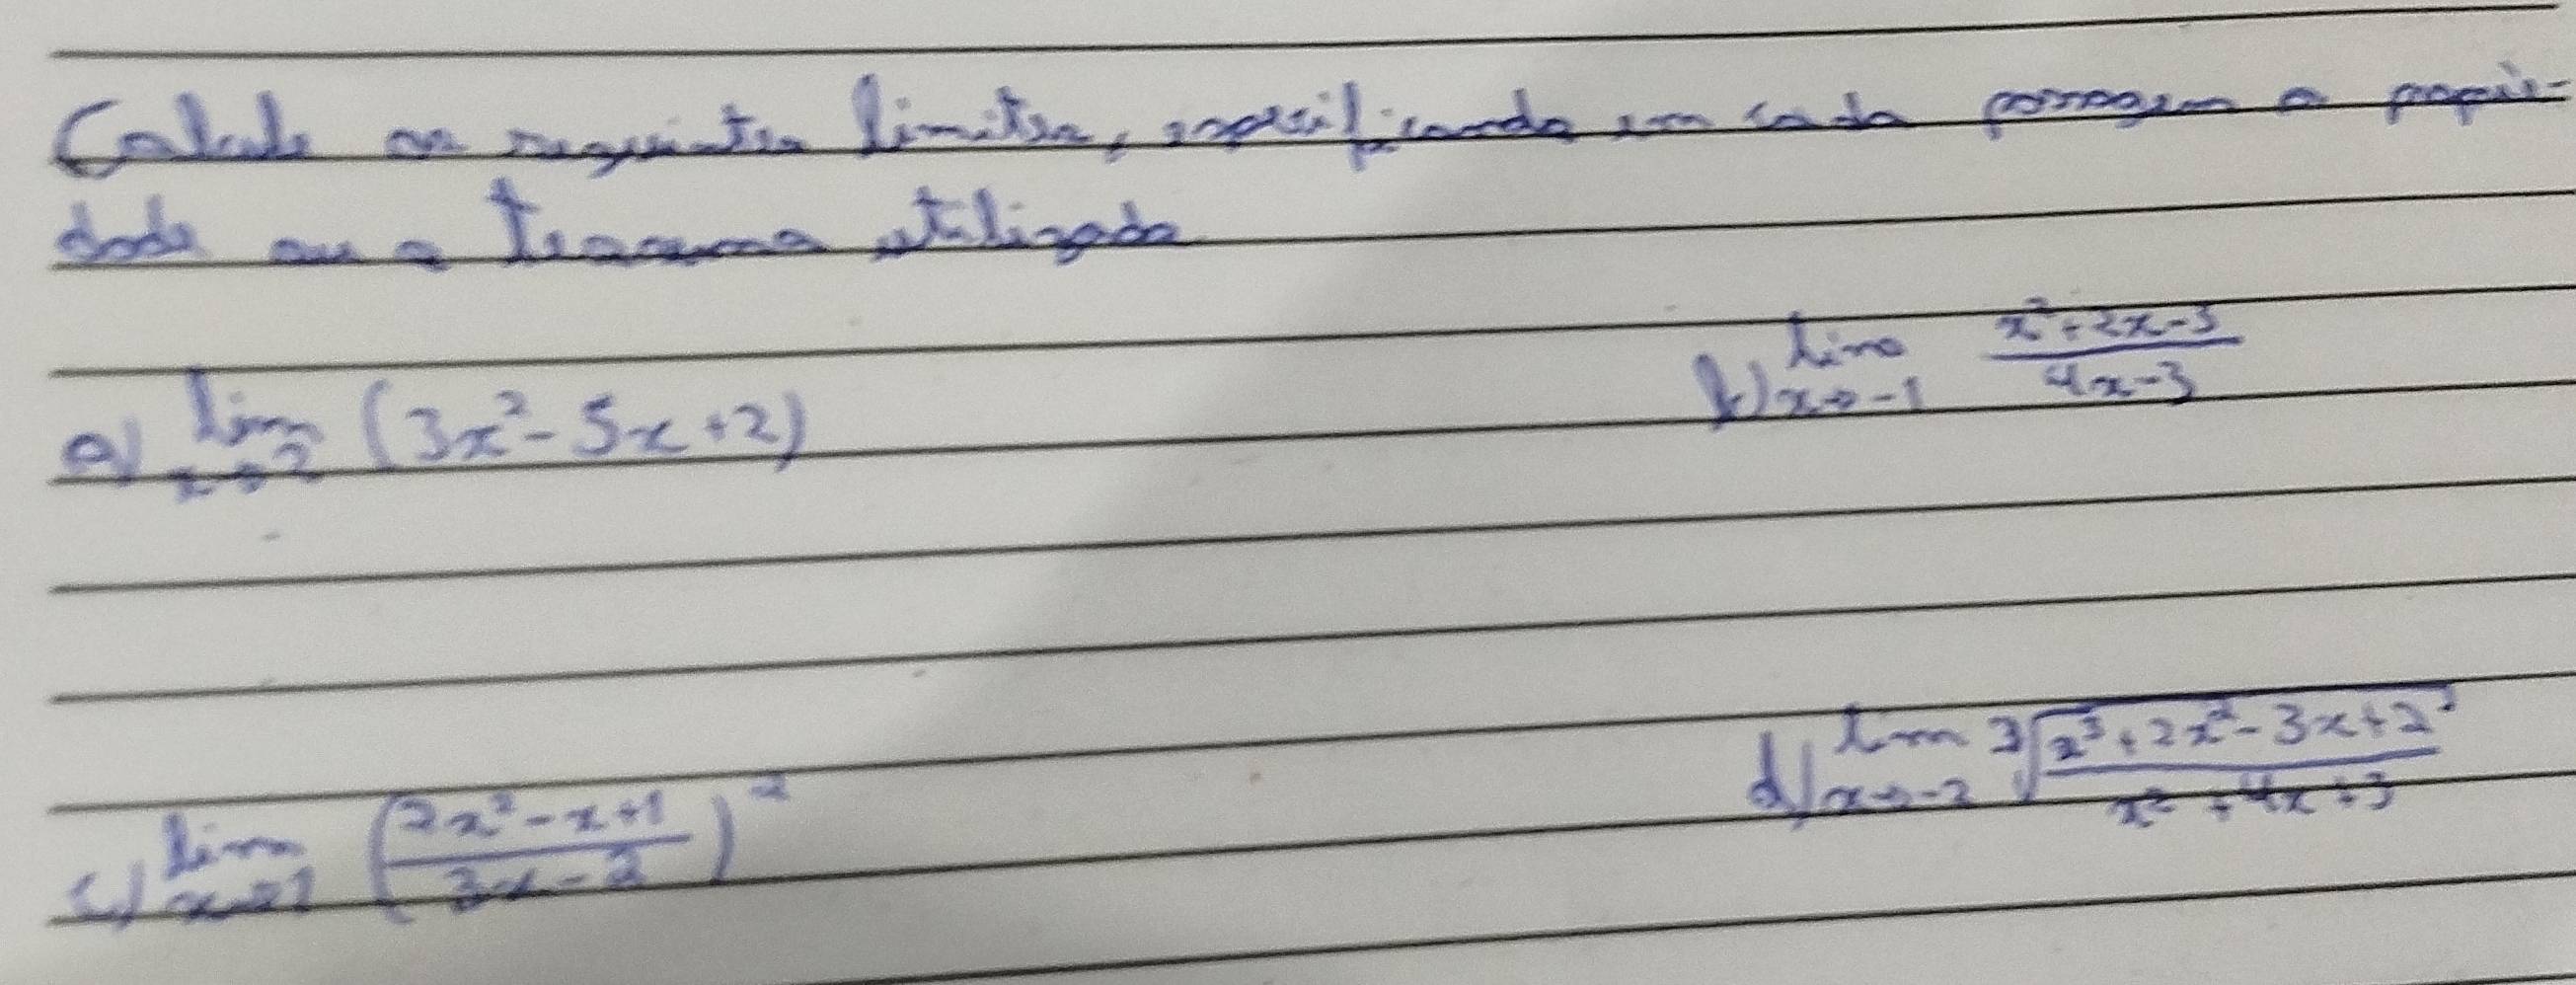 Calcule os seguintes limites, especificando em cada passagem a proprie-
dade ou o teorema utilizado
a) lim x→2 (3x² - 5x + 2)
b) lim x→-1 (x² + 2x - 3)/(4x - 3)
c) lim x→1 ((2x² - x + 1)/(3x - 2))²
d) lim x→-2 ∛((x³ + 2x² - 3x + 2)/(x² + 4x + 3))